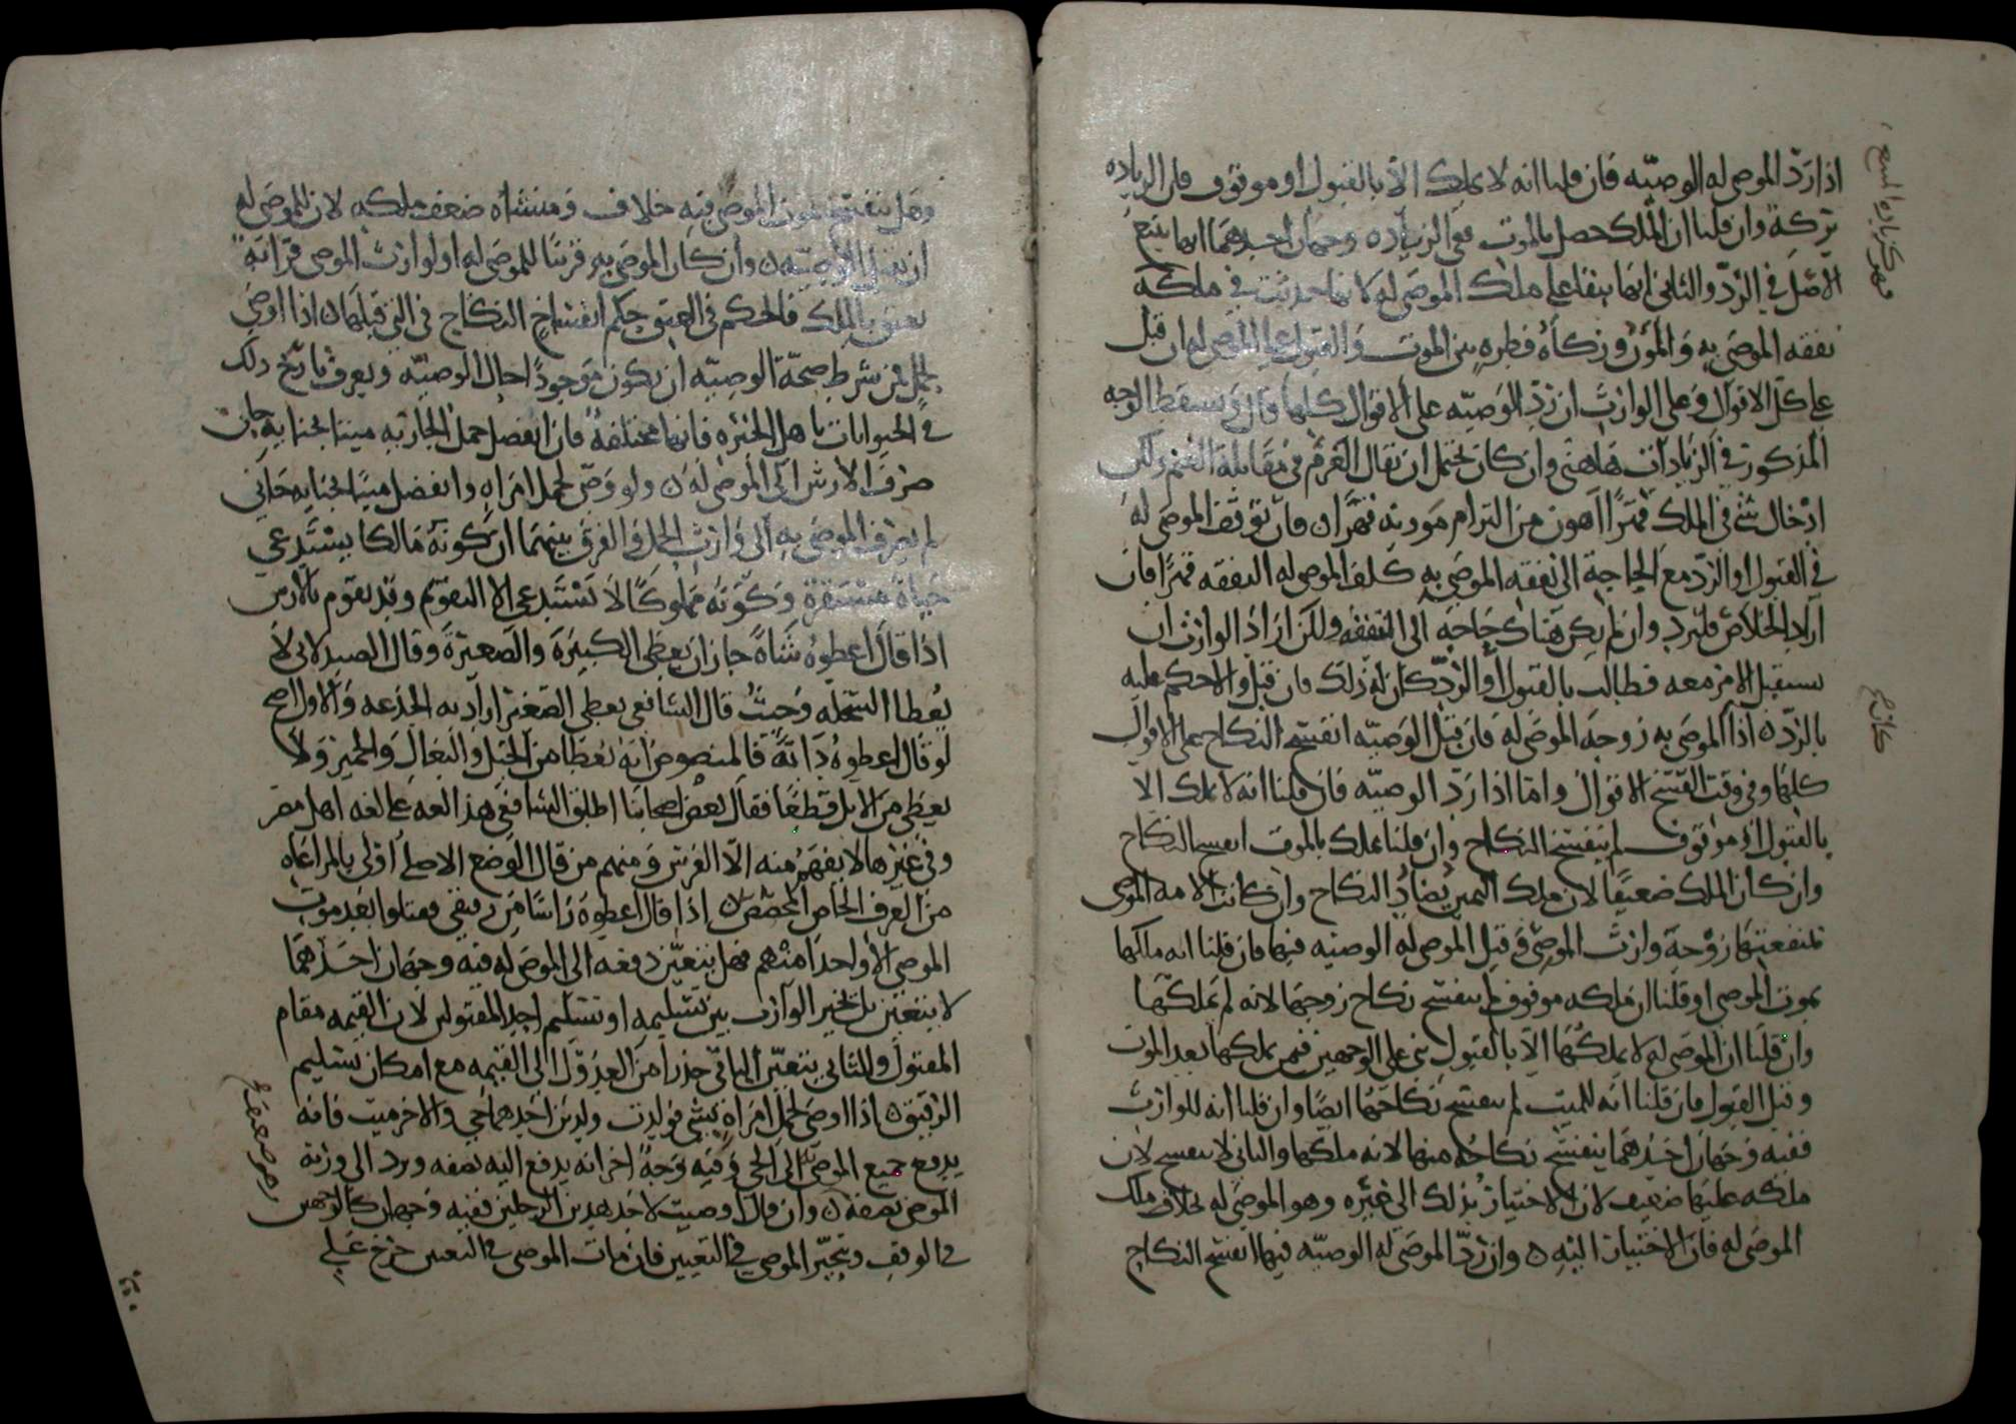 اذا ردّ الموصى له الوصيّه فان قلنا انه لا يملك الا بالقبول او موقوف فان الزياده
تركة وان قلنا ان الملك حصل بالموت ففي الزياده وجهان احدهما انها يتبع
الاصل في الردّ والثاني انها يبقا على ملك الموصى له لانها حدثت في ملكه
نفقه الموصى به والمؤن وزكاة فطره بين الموت والقبول على الموصى له ان قبل
على كل الاقوال وعلى الوارث ان ردّ الوصيّه على الاقوال كلها قال ويسقط الوجه
المذكور في الزيادات هاهنى وان كان يحتمل ان يقال الغرم في مقابلة الغنم ولكن
ادخال شيء في الملك قهرًا اهون من التزام مؤونه قهرًا ن فان توقف الموصى له
في القبول او الردّ مع الحاجة الى نفقه الموصى به كلف الموصى له النفقه قهرًا فان
اراد الخلاص فليرد وان لم يكن هناك حاجه الى النفقه ولكن اراد الوارث ان
يستقبل الامر معه فطالب بالقبول او الردّ كان له ذلك فان قبل والا حكم عليه
بالردّ ن اذا الموصى به زوجة الموصى له فان قبل الوصيّه انفسخ النكاح على الاقوال
كلها وفي وقت الفسخ الاقوال واما اذا ردّ الوصيّه فان قلنا انه لا يملك الا
بالقبول او موقوف لم ينفسخ النكاح وان قلنا يملك بالموت انفسخ النكاح
وان كان الملك ضعيفًا لان ملك اليمين يضادّ النكاح وان كانت الامه الموصى
بمنفعتها زوجة وارث الموصى وقبل الموصى له الوصيه فيها فان قلنا انه ملكها
بموت الموصى او قلنا ان ملكه موقوف لم ينفسخ نكاح زوجها لانه لم يملكها
وان قلنا ان الموصى له لا يملكها الا بالقبول بنى على الوجهين فيمن يملكها بعد الموت
وقبل القبول فان قلنا انه للميت لم ينفسخ نكاحها ايضًا وان قلنا انه للوارث
ففيه وجهان احدهما ينفسخ نكاحه منها لانه ملكها والثاني لا ينفسخ لان
ملكه عليها ضعيف لان الاختيار بذلك الى غيره وهو الموصى له بخلاف ملك
الموصى له فان الاختيار اليه ن وان ردّ الموصى له الوصيّه فيها انفسخ النكاح
وهل ينفسخ الموصى فيه خلاف ومنشأه ضعف ملكه لان للموصى له
ان يقبل الوصيّه ن وان كان الموصى به قريبًا للموصى له او لوارث الموصى قرابة
يعتق بالملك فالحكم في العتق حكم انفساخ النكاح في التي قبلها ن اذا اوصى
بحمل فمن شرط صحّة الوصيّه ان يكون موجودًا حال الوصيّه ويعرف تاريخ ذلك
في الحيوانات باهل الخبره فانها مختلفة فان انفصل حمل الجاريه ميتا بجنايه جان
صرف الارش الى الموصى له ن ولو وصّى لحمل امراه وانفصل ميتًا بجنايه جاني
لم يصرف الموصى به الى وارث الحمل والفرق بينهما ان كونه مالكا يستدعي
حياة مستقرة وكونه مملوكًا لا يستدعي الا التقويم وقد يقوم بالارش
اذا قال اعطوه شاةً جاز ان يعطى الكبيرة والصغيرة وقال الصيدلاني لا
يعطا السخله وحيث قال الشافعي يعطى الصغير اراد به الجذعه والاول اصح
لو قال اعطوه دابّة فالمنصوص انه يعطا من الخيل والبغال والحمير ولا
يعطى من الابل قطعًا فقال بعض اصحابنا اطلق الشافعي هذا لغه على لغه اهل مصر
وفي غيرها لا يفهم منه الا الفرس ومنهم من قال الوضع الاصلي اولى بالمراعاه
من العرف الخاص المخصص ن اذا قال اعطوه راسًا من رقيقي فقتلوا بعد موت
الموصي الا واحدا منهم فهل يتعيّن دفعه الى الموصى له فيه وجهان احدهما
لا يتعين بل يخير الوارث بين تسليمه او تسليم احد المقتولين لان القيمه مقام
المقتول والثاني يتعيّن الباقي حذرا من العدول الى القيمه مع امكان تسليم
الرقيق ن اذا اوصى لحمل امراة بشي فولدت ولدين احدهما حي والاخر ميت فانه
يدفع جميع الموصى به الى الحي وفيه وجهٌ اخر انه يدفع اليه نصفه ويرد الى ورثة
الموصي نصفه ن وان قال اوصيت لاحد هذين الرجلين ففيه وجهان كالوجهين
في الوقف ويخيّر الموصي في التعيين فان مات الموصي قبل التعيين خرّج على